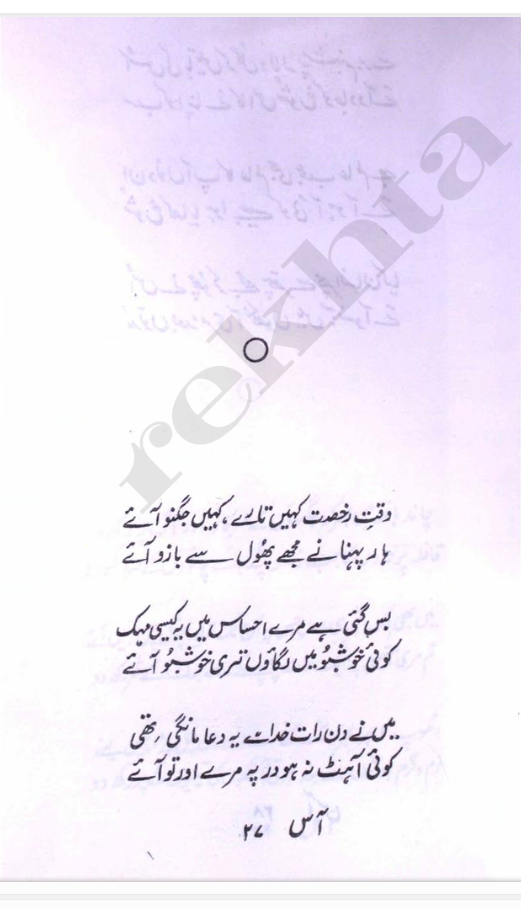 rekhta
وقتِ رخصت کہیں تارے، کہیں جگنو آئے
ہار پہنانے مجھے پھُول سے بازو آئے
بس گئی ہے مرے احساس میں یہ کیسی مہک
کوئی خوشبُو میں لگاؤں تری خوشبُو آئے
میں نے دن رات خدا سے یہ دعا مانگی تھی
کوئی آہٹ نہ ہو در پہ مرے اور تو آئے
آس ۲۷